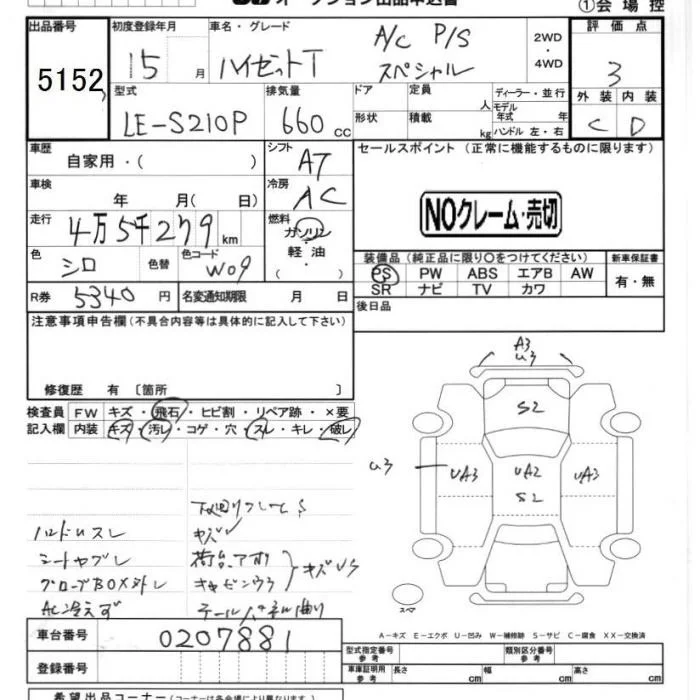 オークション出品申込書
①会場控
出品番号 初度登録年月 車名・グレード 評価点
5152
15 月 ハイゼットT A/C P/S スペシャル 2WD ・ 4WD 3
型式 排気量 ドア 定員 人 ディーラー・並行 外装 内装
LE-S210P 660 cc 形状 積載 kg モデル年式 年 ハンドル 左・右 C D
車歴 シフト セールスポイント (正常に機能するものに限ります)
自家用・( ) AT
車検 冷房
年 月( 日) AC
NOクレーム・売切
走行 燃料
4万5千279 km ガソリン・軽油 ( )
色 色替 色コード 装備品(純正品に限り〇をつけてください) 新車保証書
シロ W09 PS PW ABS エアB AW 有・無
SR ナビ TV カワ
R券 5340 円 名変通知期限 月 日 後日品
注意事項申告欄(不具合内容等は具体的に記入して下さい)
修復歴 有 〔箇所 〕
検査員 FW キズ・飛石・ヒビ割・リペア跡・×要
記入欄 内装 キズ・汚レ・コゲ・穴・スレ・キレ・破レ
A3
U3
S2
U3 UA3 UA2 UA3
S2
スペア
下廻りフレーム S
ハンドルスレ キズ
シートヤブレ 荷台、アオリ
グローブBOX外レ キャビンウラ キズUS
AC冷えず テールパネル曲り
A-キズ E-エクボ U-凹み W-補修跡 S-サビ C-腐食 XX-交換済
車台番号 0207881
型式指定番号 参考 類別区分番号 参考
登録番号 車庫証明用 参考 長さ cm 幅 cm 高さ cm
希望出品コーナー